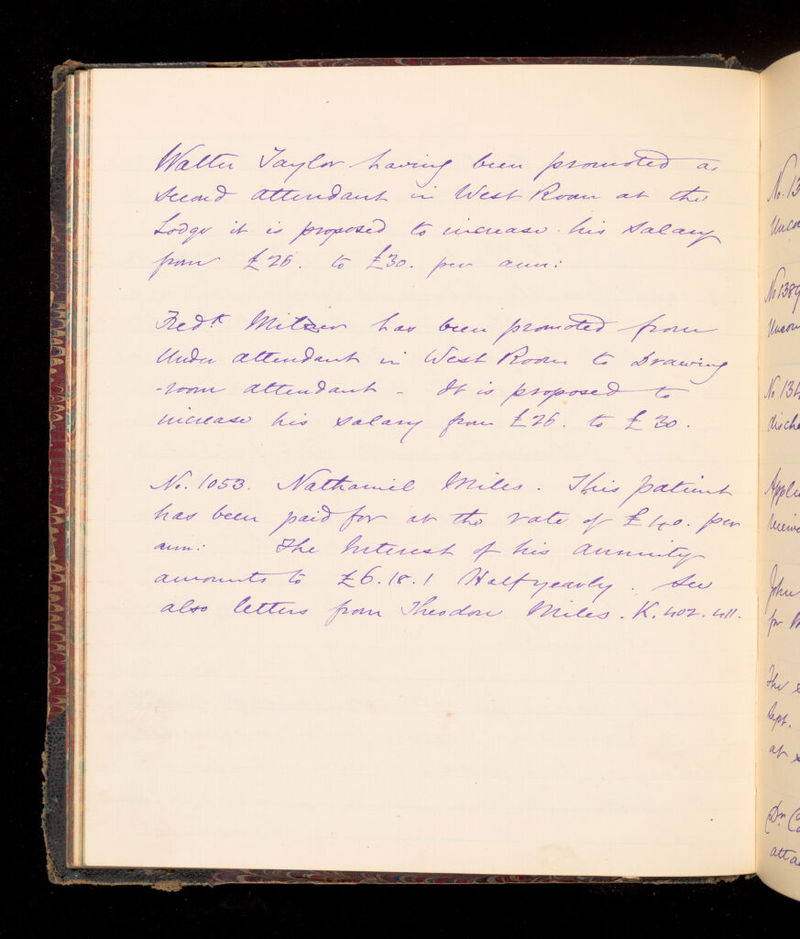 Walter Taylor having been promoted as
second attendant in West Room at the
Lodge it is proposed to increase his salary
from £26. to £30. per ann:
Fredk has been promoted from
Under attendant in West Room to Drawing
-room attendant - It is proposed to
increase his salary from £26. to £30.
No. 1053. Nathaniel Miles. This patient
has been paid for at the rate of £40. per
ann: The Interest of his annuity
amounts to £6.18.1 Half yearly. See
also letters from Theodore Miles. K. 402. 411.
No. 13
Unco
No 1389
Uncon
No 134
disch
Applic
receive
John
for
The
Sept.
at
Dr. Ca
atta